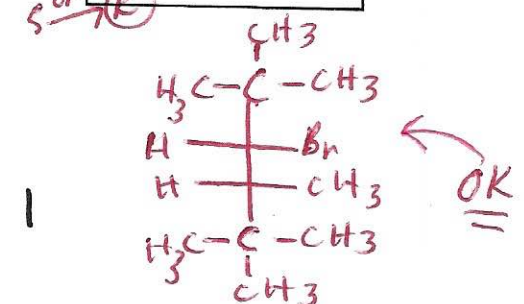 S or → R
CH3
H3C-C-CH3
H Br
H CH3
OK
1
H3C-C-CH3
CH3